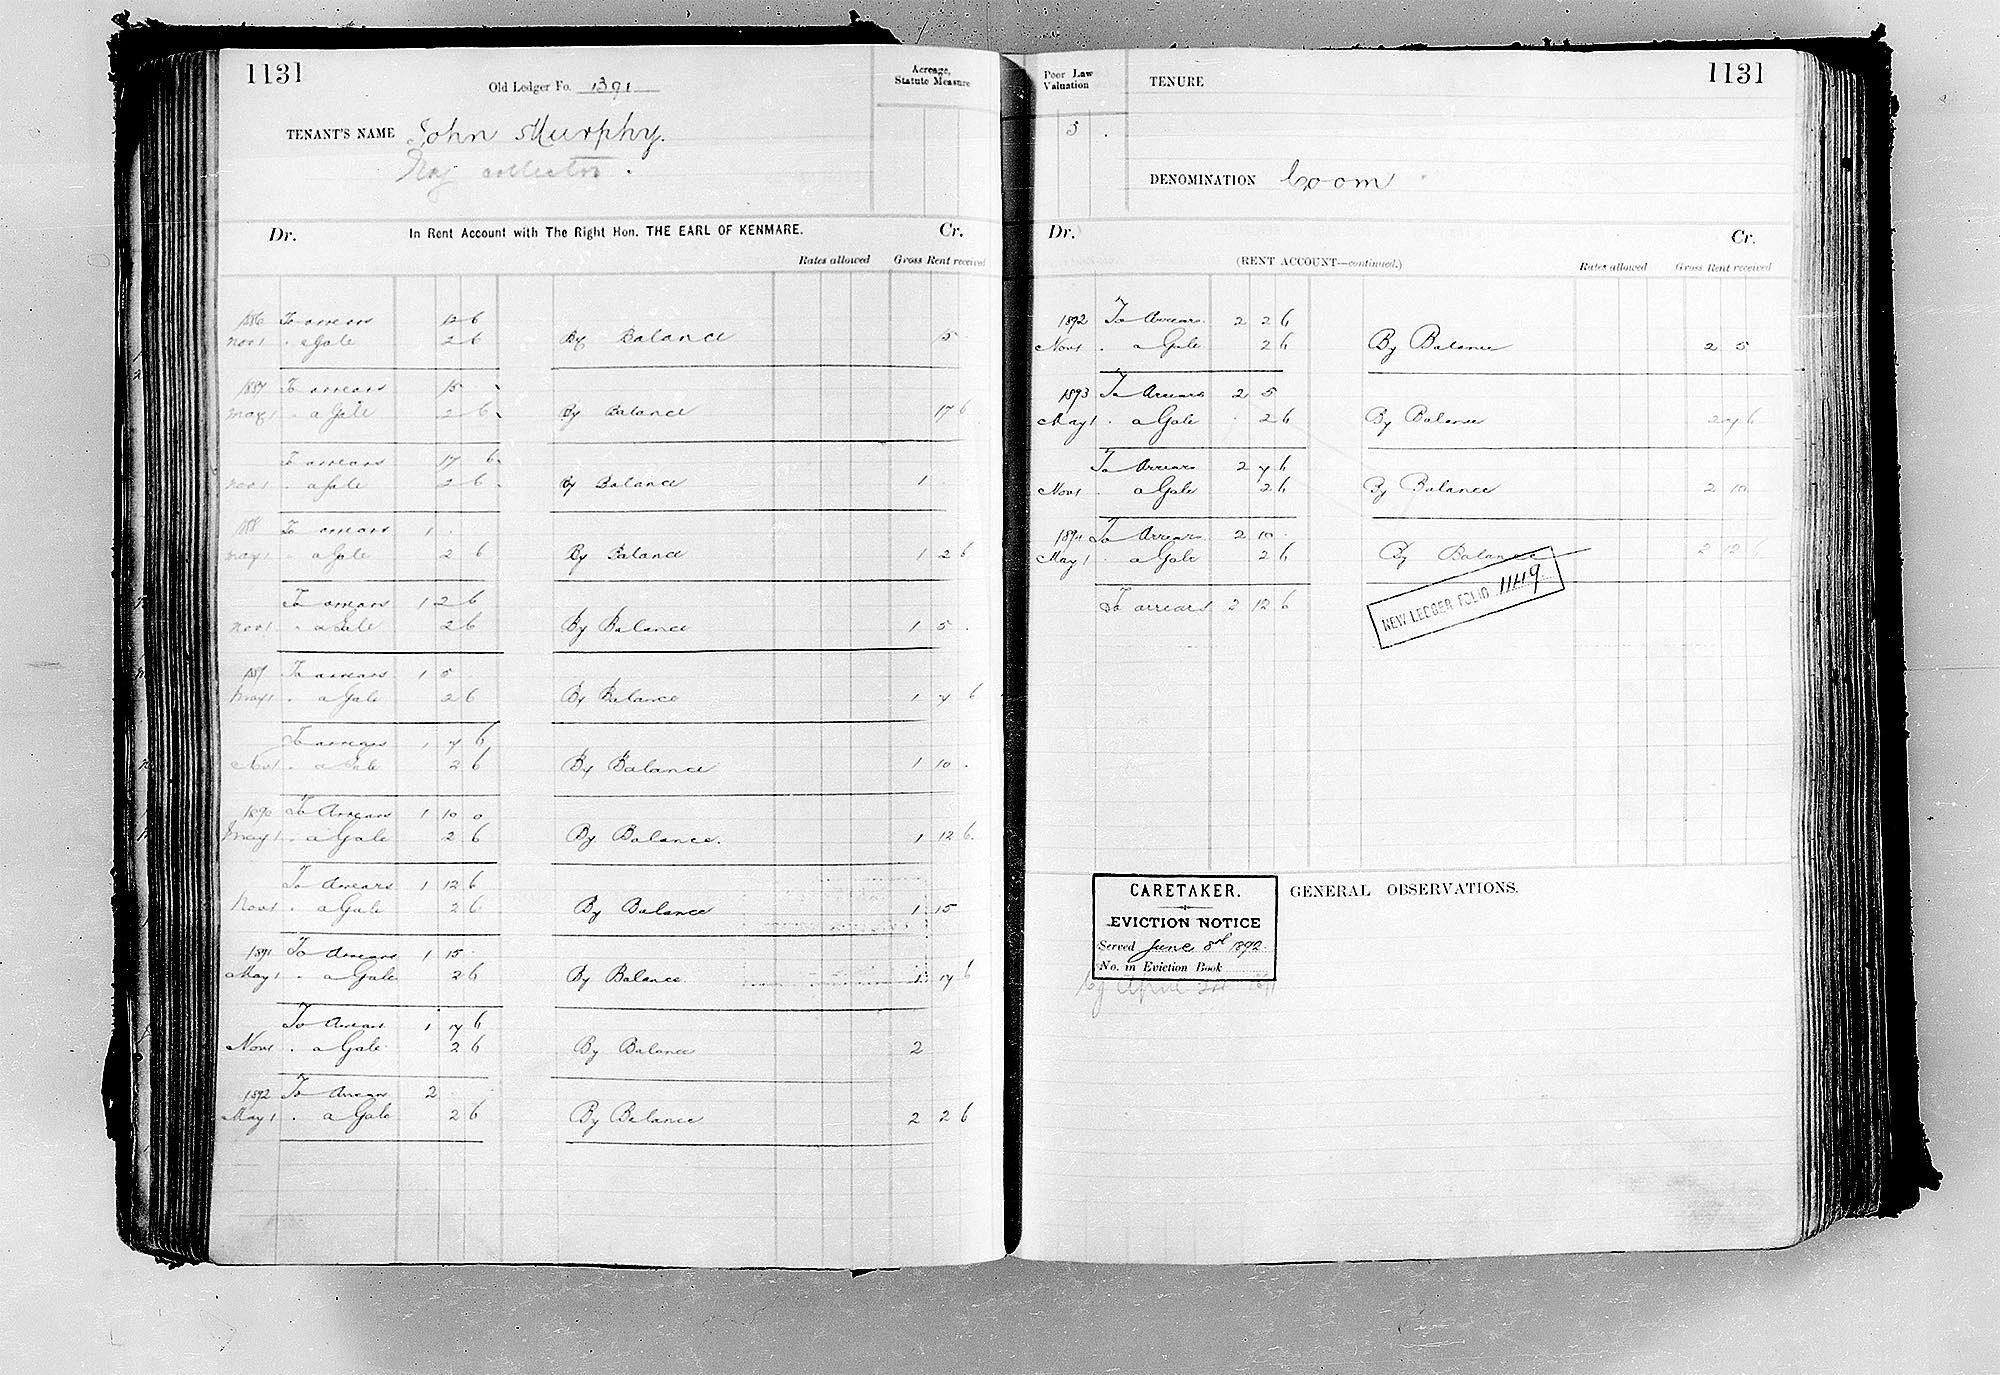 1131
Old Ledger Fo. 1391
Acreage, Statute Measure
TENANT'S NAME John Murphy.
collector.
Dr. In Rent Account with The Right Hon. THE EARL OF KENMARE. Cr.
Rates allowed Gross Rent received
1886 To arrears 12 6
Nov 1 . a Gale 2 6 By Balance 15
1887 To arrears 15
May 1 . a Gale 2 6 By Balance 17 6
To arrears 17 6
Nov 1 . a Gale 2 6 By Balance 1
188 To arrears 1
May 1 a Gale 2 6 By Balance 1 2 6
To arrears 1 2 6
Nov 1 . a Gale 2 6 By Balance 1 5 .
188 To arrears 1 5
May 1 . a Gale 2 6 By Balance 1 7 6
To arrears 1 7 6
Nov 1 . a Gale 2 6 By Balance 1 10 .
1890 To Arrears 1 10 0
May 1 . a Gale 2 6 By Balance. 1 12 6.
To Arrears 1 12 6
Nov 1 . a Gale 2 6 By Balance 1 15
1891 To Arrears 1 15
May 1 . a Gale 2 6 By Balance. 1 17 6
To Arrears 1 7 6
Nov 1 . a Gale 2 6 By Balance 2
1892 To Arrears 2
May 1 . a Gale 2 6 By Balance 2 2 6
Poor Law Valuation
TENURE
1131
5 .
DENOMINATION Coom
Dr. Cr.
(RENT ACCOUNT—continued.) Rates allowed Gross Rent received
1892 To Arrears 2 2 6
Nov 1 . a Gale 2 6 By Balance 2 5
1893 To Arrears 2 5
May 1 . a Gale 2 6 By Balance 2 7 6
To Arrears 2 7 6
Nov 1 . a Gale 2 6 By Balance 2 10
1894 To Arrears 2 10
May 1 . a Gale 2 6 By Balance 2 12
To arrears 2 12 6
NEW LEDGER FOLIO 1149
CARETAKER.
EVICTION NOTICE
Served June 8th 1892
No. in Eviction Book
April
GENERAL OBSERVATIONS.